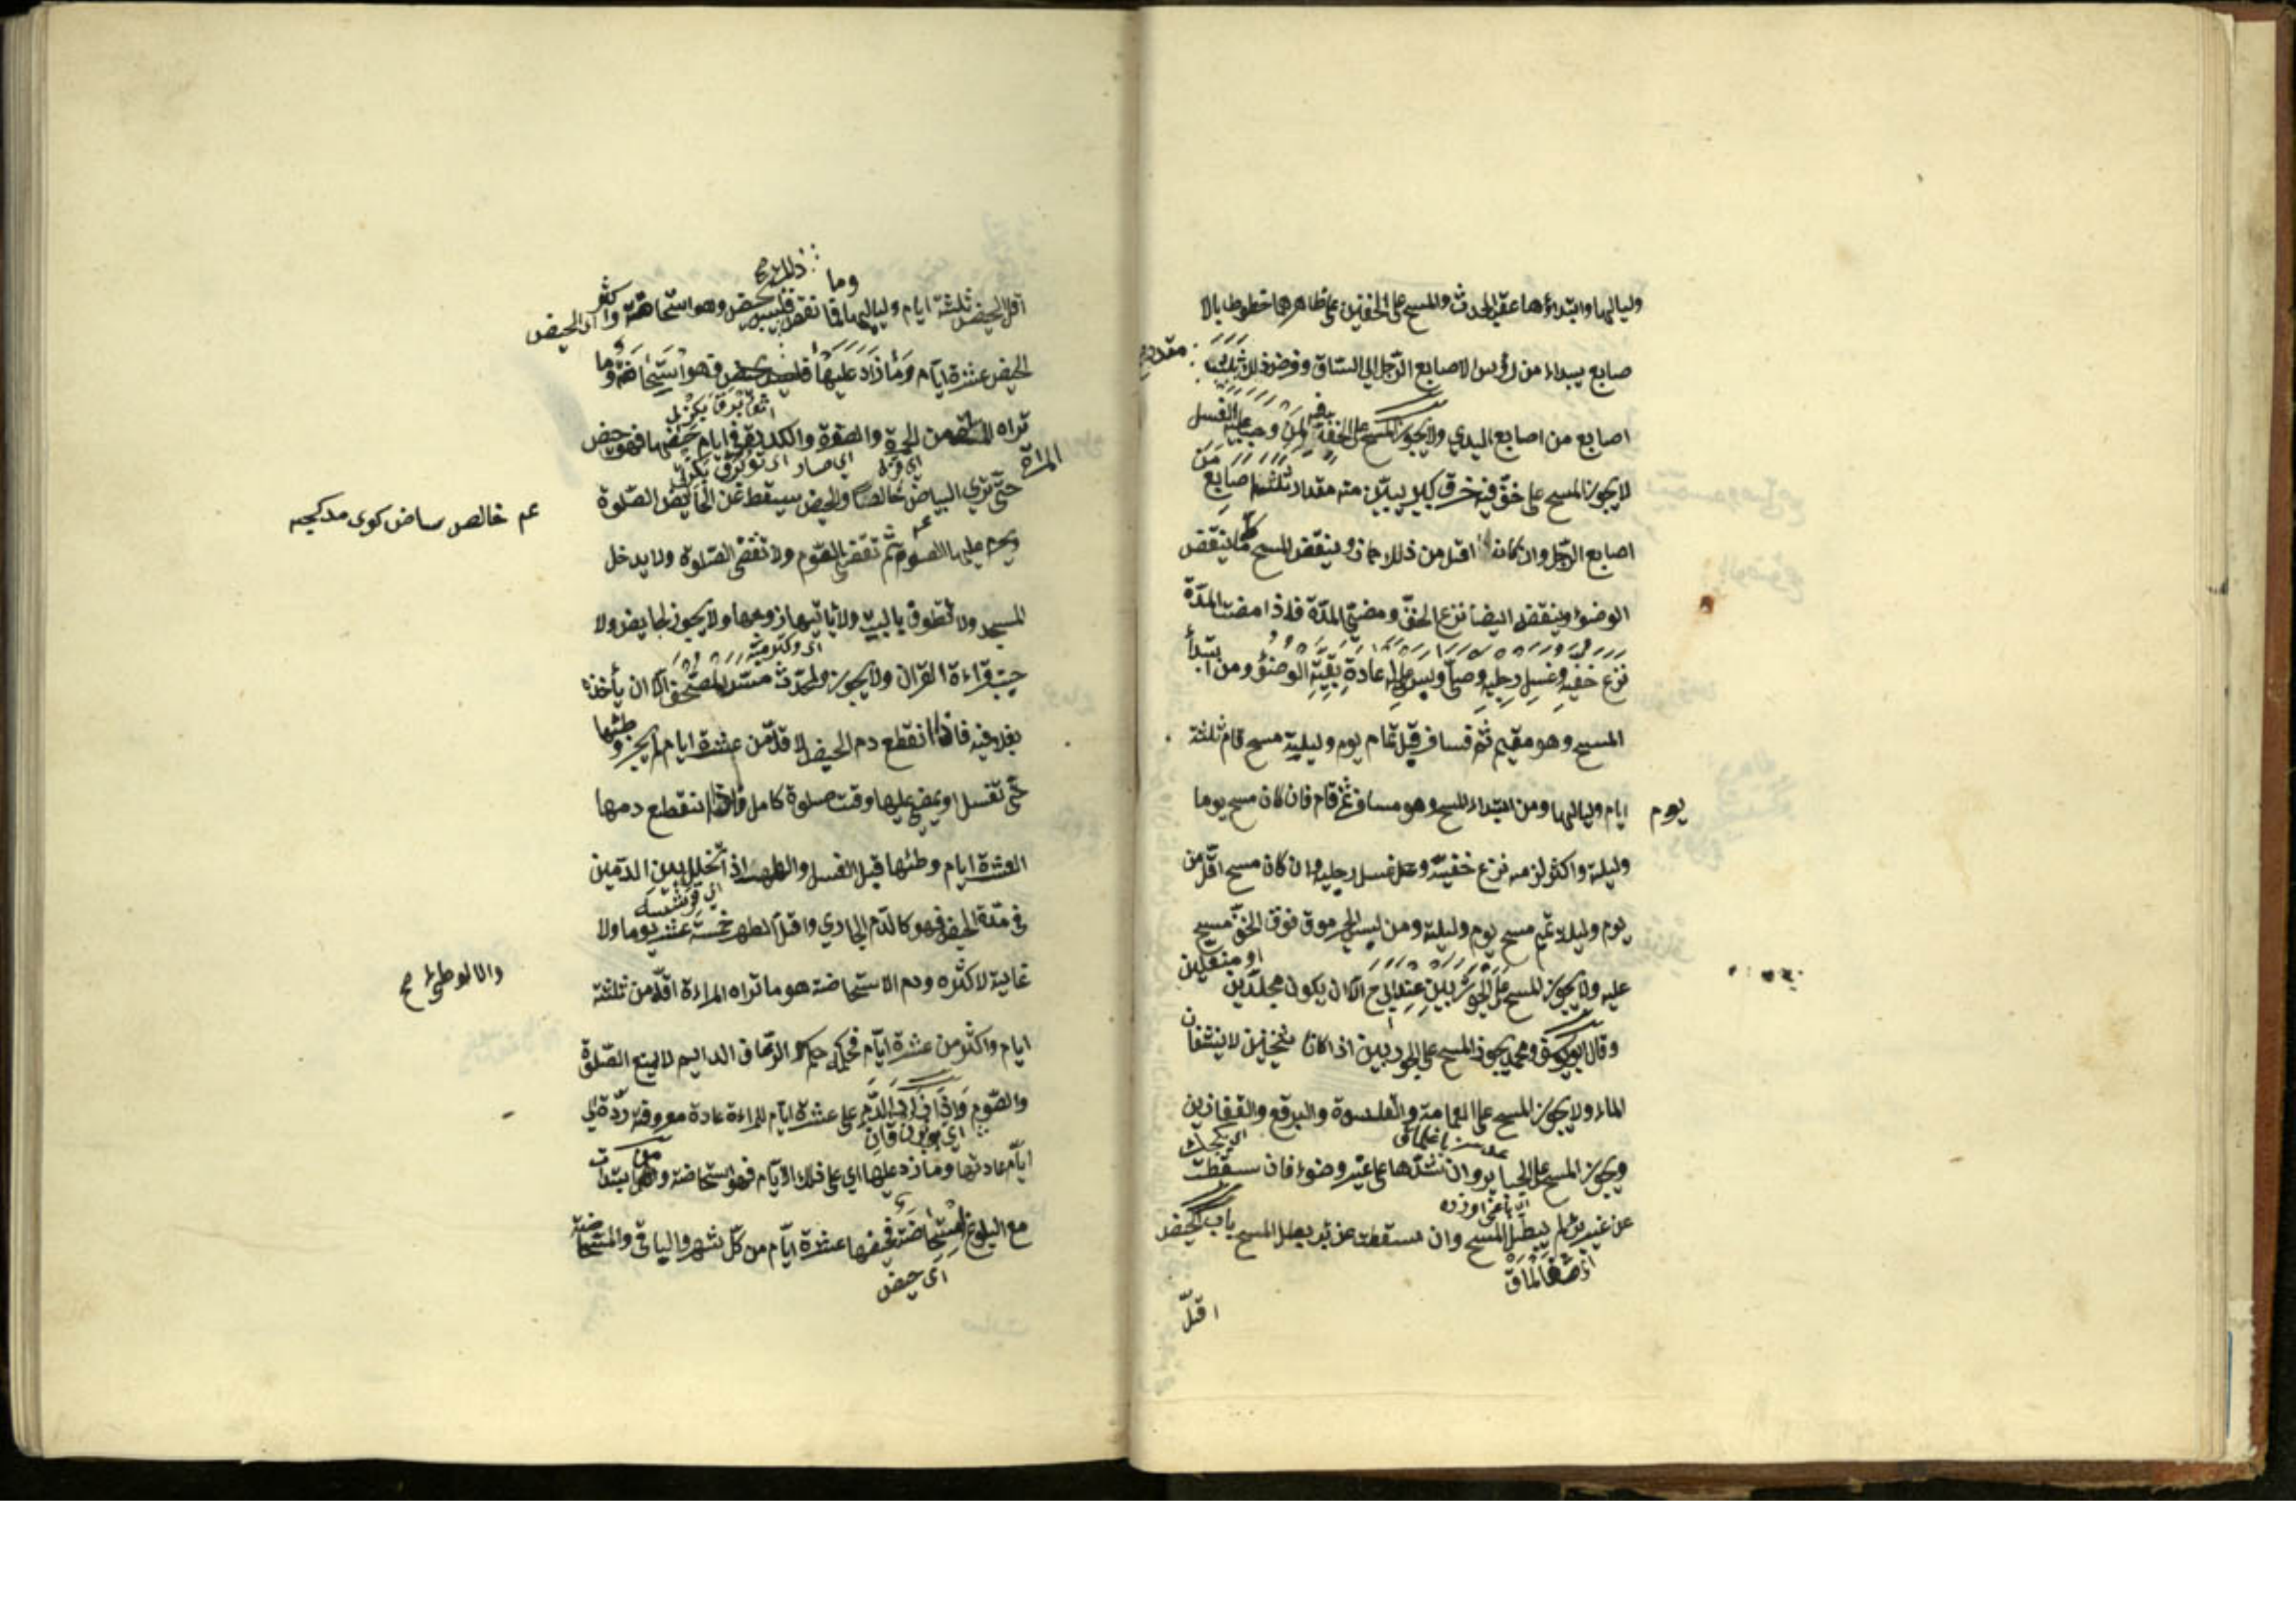 ولياليها وابتداؤها عقيب الحدث والمسح على الخفين على ظاهرهما خطوطا بالا
صابع يبداء من رؤس الاصابع الرّجل الى السّاق وفرض ذلك ثلاث
مقدار
اصابع من اصابع اليدي ولا يجوز المسح على الخف لمن وجب عليه الغسل
لا يجوز المسح على خفّ فيه خرق كبير يبيّن منه مقدار ثلثة اصابع
من
اصابع الرّجل وان كانه اقل من ذلك جاز وينقض المسح ما ينقض
الوضوء وينقضه ايضا نزع الخفّ ومضيّ المدّة فاذا مضت المدّة
نزع خفيه وغسل رجليه وصلّى وليس عليه اعادة بقيّة الوضوء ومن ابتدأ
المسح وهو مقيم ثم فسافر قبل تمام يوم وليلية مسح تمام ثلثة
ايام ولياليها ومن ابتداء المسح وهو مسافر ثم قام فان كان مسح يوما
يوم
وليلة واكثر لزمه نزع خفيه وغسل رجليه وان كان مسح اقلّ من
يوم وليلة تمم مسح يوم وليلة ومن لبس الجرموق فوق الخفّ مسح
عليه ولا يجوز المسح على الجوربين عند ابي ح الّا ان يكون مجلدين
او منعلين
وقال ابو يوسف ومحمد يجوز المسح على الجوربين اذا كانا ثخينين لا ينشفان
الماء ولا يجوز المسح على العمامة والقلنسوة والبرقع والقفازين
ويجوز المسح على الجباير وان شدّها على غير وضوء فان سقطت
عن غير برء لم يبطل المسح وان سقطت عن برء بطل المسح باب الحيض
اقلّ
وما
ذلك صح
اقل الحيض ثلثة ايام ولياليها فما نقص فليس بحيض وهو استحاضة واكثر الحيض
الحيض عشرة ايّام وما زاد عليها فليس بحيض فهو استحاضة وما
تراه المراة من الحمرة والصفرة والكدرة في ايام حيضها فهو حيض
المراة
حتّى تري البياض خالصا والحيض يسقط عن الحايض الصّلوة
عم خالص بياض كورمدكجه
ويحرم عليها الصوم ثم تقضي الصّوم ولا تقضى الصّلوة ولا يدخل
المسجد ولا تطوف بالبيت ولا ياتيها زوجها ولا يجوز لحايض ولا
جنب قراءة القران ولا يجوز لمحدث مسّ المصحف الّا ان يأخذه
بغلافه فاذا انقطع دم الحيض لاقلّ من عشرة ايام لم يجز وطئها
حتّى تغسل او يمضي عليها وقت صلوة كامل فاذا انقطع دمها
العشرة ايام وطئها قبل الغسل والطهر اذا تخلل بين الدّمين
في مدّة الحيض فهو كالدّم الجاري واقلّ الطهر خمسة عشر يوما ولا
غاية لاكثره ودم الاستحاضة هو ما تراه المراءة اقلّ من ثلثة
والا لوطئ صح
ايام واكثر من عشرة ايّام فحكمه حكم الرّعاف الدايم لا يمنع الصّلوة
والصّوم واذا زاد الدّم على عشرة ايّام للمراءة عادة معروفة ردّة الى
ايّام عادتها وما زاد عليها اى على ذلك الايّام فهو استحاضة وان ابتدات
مع البلوغ مستحاضة فحيضها عشرة ايّام من كلّ شهر والباقي والمستحاضة
اى حيض